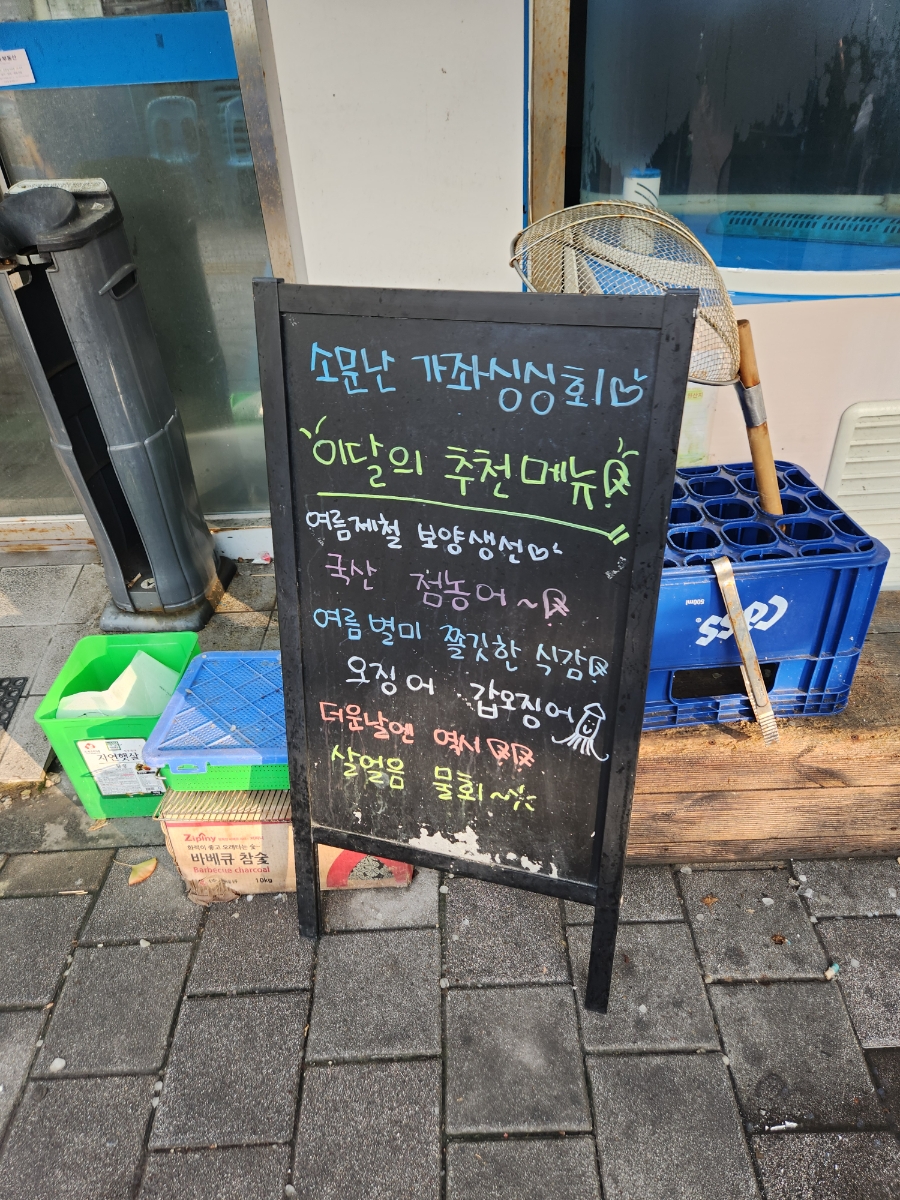 소문난 가좌싱싱회
이달의 추천메뉴
여름제철 보양생선
국산 점농어~
여름별미 쫄깃한 식감
오징어 갑오징어
더운날엔 역시
살얼음 물회~
자연햇살
Zipiny
바베큐 참숯
Barbecue charcoal
10kg
Cass
500ml